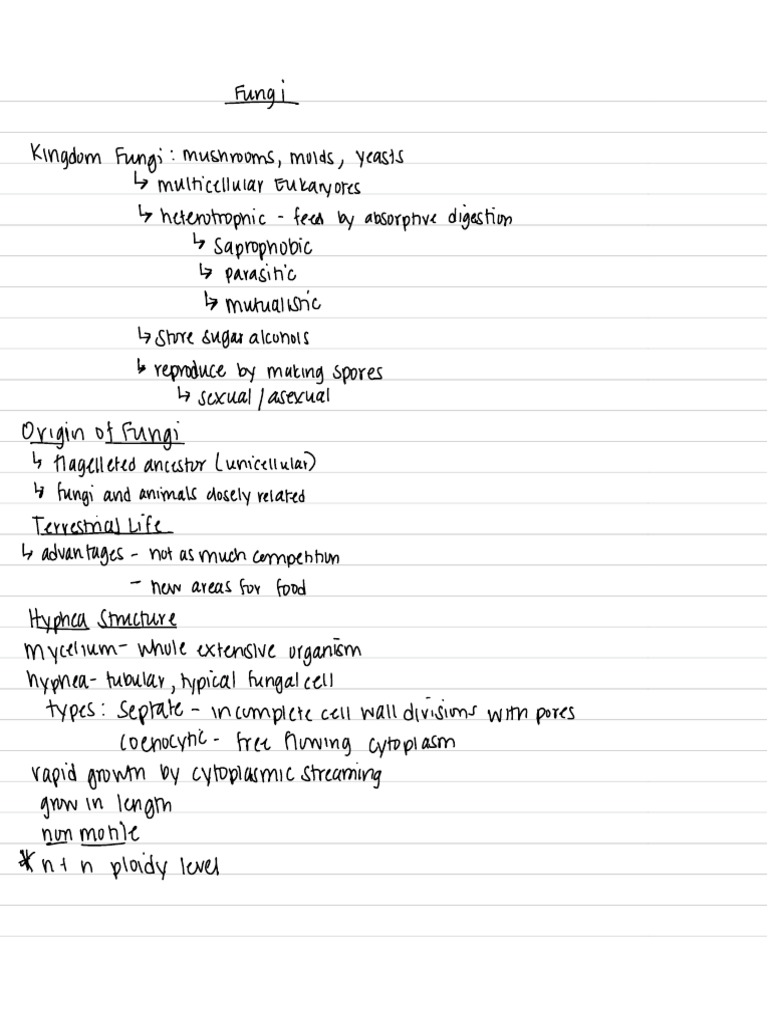 Fungi
Kingdom Fungi: mushrooms, molds, yeasts
↳ multicellular Eukaryotes
↳ heterotrophic - feed by absorptive digestion
↳ Saprophobic
↳ parasitic
↳ mutualistic
↳ Store sugar alcohols
↳ reproduce by making spores
↳ sexual / asexual
Origin of Fungi
↳ flagelleted ancestor (unicellular)
↳ fungi and animals closely related
Terrestrial Life
↳ advantages - not as much competition
- new areas for food
Hyphea Structure
mycelium - whole extensive organism
hyphea - tubular, typical fungal cell
types: Septate - incomplete cell wall divisions with pores
Coenocytic - free flowing cytoplasm
rapid growth by cytoplasmic streaming
grow in length
non motile
* n + n ploidy level